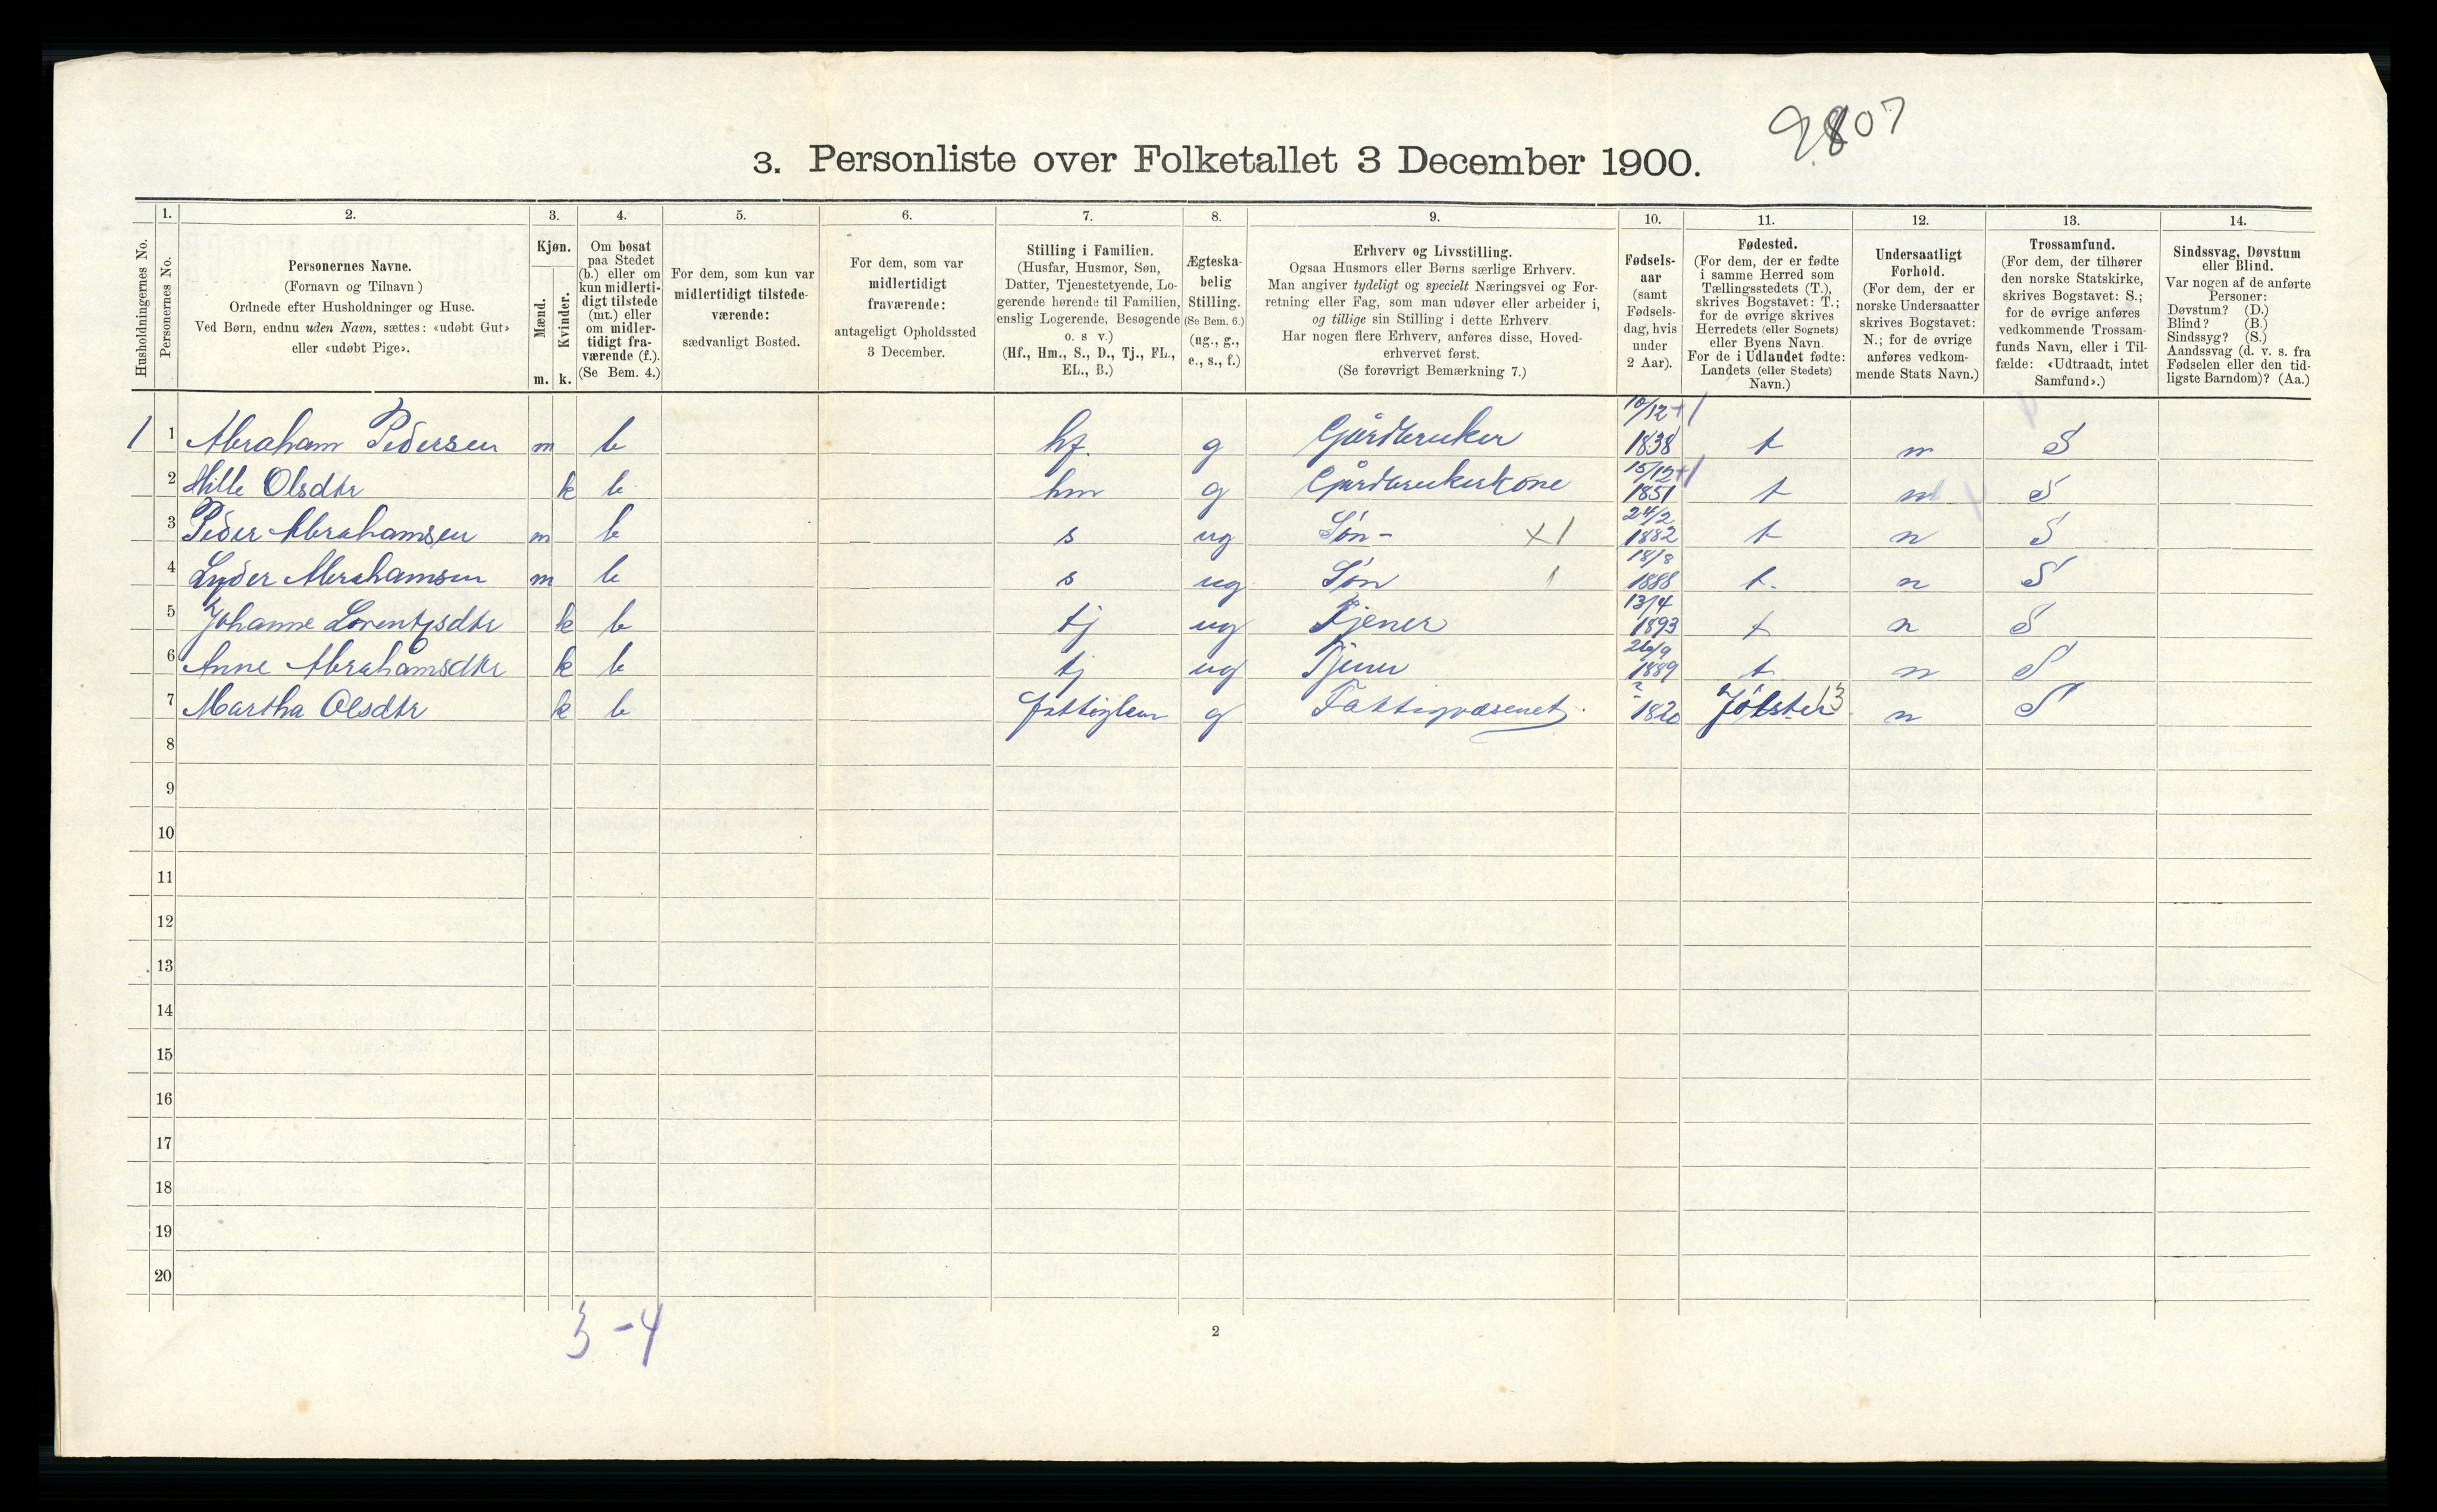 9807
3. Personliste over Folketallet 3 December 1900.
1. 2. 3. 4. 5. 6. 7. 8. 9. 10. 11. 12. 13. 14.
Husholdningernes No.
Personernes No.
Personernes Navne.
(Fornavn og Tilnavn)
Ordnede efter Husholdninger og Huse.
Ved Børn, endnu uden Navn, sættes: «udøbt Gut»
eller «udøbt Pige».
Kjøn.
Mænd.
Kvinder.
m. k.
Om bosat
paa Stedet
(b.) eller om
kun midlerti-
digt tilstede
(mt.) eller
om midler-
tidigt fra-
værende (f.).
(Se Bem. 4.)
For dem, som kun var
midlertidigt tilstede-
værende:
sædvanligt Bosted.
For dem, som var
midlertidigt
fraværende:
antageligt Opholdssted
3 December.
Stilling i Familien.
(Husfar, Husmor, Søn,
Datter, Tjenestetyende, Lo-
gerende hørende til Familien,
enslig Logerende, Besøgende
o. s v.)
(Hf., Hm., S., D., Tj., FL.,
EL., B.)
Ægteska-
belig
Stilling.
(Se Bem. 6.)
(ug., g.,
e., s., f.)
Erhverv og Livsstilling.
Ogsaa Husmors eller Børns særlige Erhverv.
Man angiver tydeligt og specielt Næringsvei og For-
retning eller Fag, som man udøver eller arbeider i,
og tillige sin Stilling i dette Erhverv.
Har nogen flere Erhverv, anføres disse, Hoved-
erhvervet først.
(Se forøvrigt Bemærkning 7.)
Fødsels-
aar
(samt
Fødsels-
dag, hvis
under
2 Aar).
Fødested.
(For dem, der er fødte
i samme Herred som
Tællingsstedets (T.),
skrives Bogstavet: T.;
for de øvrige skrives
Herredets (eller Sognets)
eller Byens Navn.
For de i Udlandet fødte:
Landets (eller Stedets)
Navn.)
Undersaatligt
Forhold.
(For dem, der er
norske Undersaatter
skrives Bogstavet:
N.; for de øvrige
anføres vedkom-
mende Stats Navn.)
Trossamfund.
(For dem, der tilhører
den norske Statskirke,
skrives Bogstavet: S.;
for de øvrige anføres
vedkommende Trossam-
funds Navn, eller i Til-
fælde: «Udtraadt, intet
Samfund».)
Sindssvag, Døvstum
eller Blind.
Var nogen af de anførte
Personer:
Døvstum? (D.)
Blind? (B.)
Sindssyg? (S.)
Aandssvag (d. v. s. fra
Fødselen eller den tid-
ligste Barndom)? (Aa.)
1 1 Abraham Pedersen m b hf. g Gårdbruker 10/12 1838 t n S
2 Mille Olsdtr k b hm g Gårdbrukerkone 15/12 1851 t n S
3 Peder Abrahamsen m b s ug Søn - x1 24/2 1882 t n S
4 Lyder Abrahamsen m b s ug Søn 1 18/8 1888 t. n S
5 Johanne Lorentsdtr k b tj ug Tjener 13/4 1893 t n S
6 Anne Abrahamsdtr k b tj ug Tjener 26/9 1889 t n S
7 Martha Olsdtr k b fattiglem g Fattigvæsenet. ? 1820 Jölster 13 n S
8
9
10
11
12
13
14
15
16
17
18
19
20
3-4
2